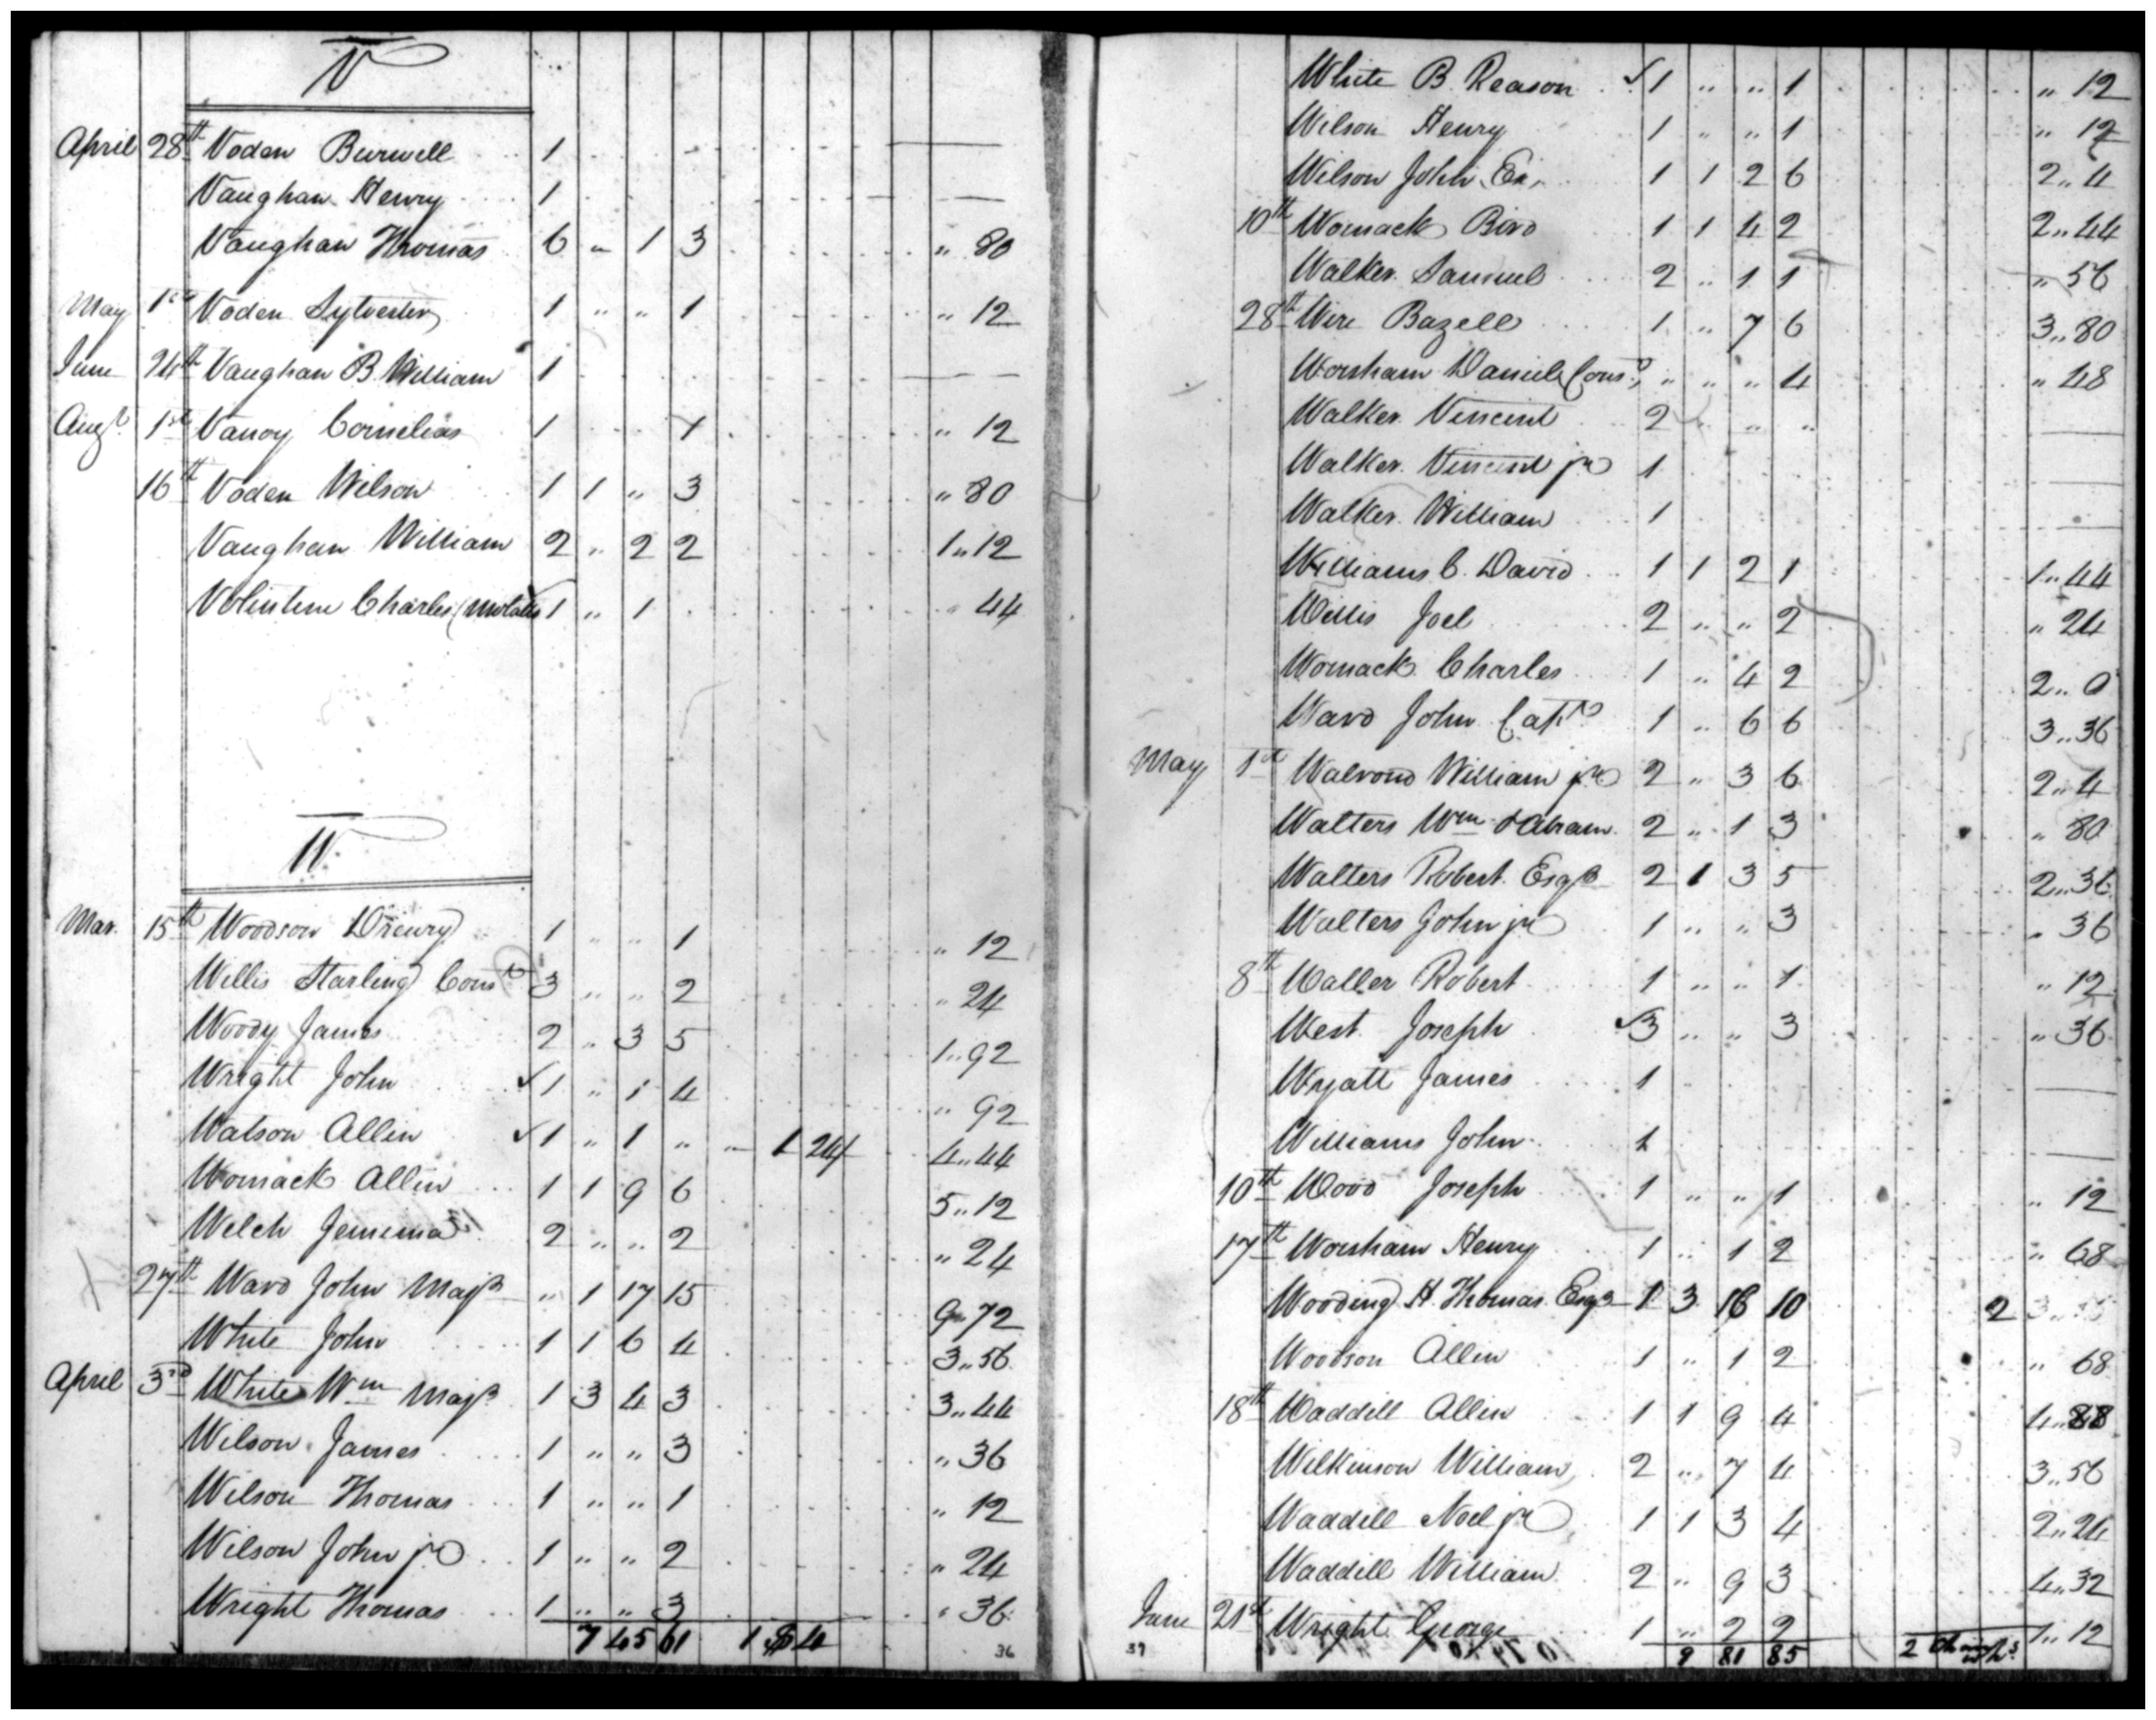 V
April 28th Voden Burwell 1
Vaughan Henry 1
Vaughan Thomas 6 " 1 3 " 80
May 1st Voden Sylvester 1 " " 1 " 12
June 24th Vaughan B. William 1
Augt. 1st Vanoy Cornelias 1 1 " 12
16th Voden Wilson 1 1 " 3 " 80
Vaughan William 2 " 2 2 1 " 12
Volintine Charles (Molatto 1 " 1 " 44
W
Mar. 15th Woodson Drewry 1 " " 1 " 12
Willis Starling Const 3 " " 2 " 24
Woody James 2 " 3 5 1 " 92
Wright John ✓ 1 " 1 4 " 92
Watson Allin ✓ 1 " 1 " 1 24 4 " 44
Womack Allin 1 1 9 6 5 " 12
Welch Jemima 2 " " 2 " 24
27th Ward John Majr " 1 17 15 9 " 72
White John 1 1 6 4 3 " 56
April 3rd White Wm Majr 1 3 4 3 3 " 44
Wilson James 1 " " 3 " 36
Wilson Thomas 1 " " 1 " 12
Wilson John jr 1 " " 2 " 24
Wright Thomas 1 " " 3 " 36
7 45 61 1
36
White B. Reason ✓ 1 " " 1 " 12
Wilson Henry 1 " " 1 " 12
Wilson John 1 1 2 6 2 " 4
10th Womack Bird 1 1 4 2 2 " 44
Walker Samuel 2 " 1 1 " 56
28th Wire Bazell 1 " 7 6 3 " 80
Worsham Daniel Const. " " " 4 " 48
Walker Vincent 2 " " "
Walker Vincent jr 1
Walker William 1
Williams C. David 1 1 2 1 1 " 44
Willis Joel 2 " " 2 " 24
Womack Charles 1 " 4 2 2 " 0
Ward John Capt 1 " 6 6 3 " 36
May 1st Walrond William jr 2 " 3 6 2 " 4
Walters Wm & Abram 2 " 1 3 " 80
Walters Robert Esqr 2 1 3 5 2 " 36
Walters John jr 1 " " 3 " 36
8th Waller Robert 1 " " 1 " 12
West Joseph ✓ 3 " " 3 " 36
Wyatt James 1
Williams John 1
10th Wood Joseph 1 " " 1 " 12
17th Worsham Henry 1 " 1 2 " 68
Wooding H. Thomas Esqr 1 3 16 10 2
Woodson Allin 1 " 1 2 " 68
18th Waddill Allin 1 1 9 4 4 " 88
Wilkinson William 2 " 7 4 3 " 56
Waddill Noel jr 1 1 3 4 2 " 24
Waddill William 2 " 9 3 4 " 32
June 21st Wright George 1 " 2 2 1 " 12
9 81 85 2
37